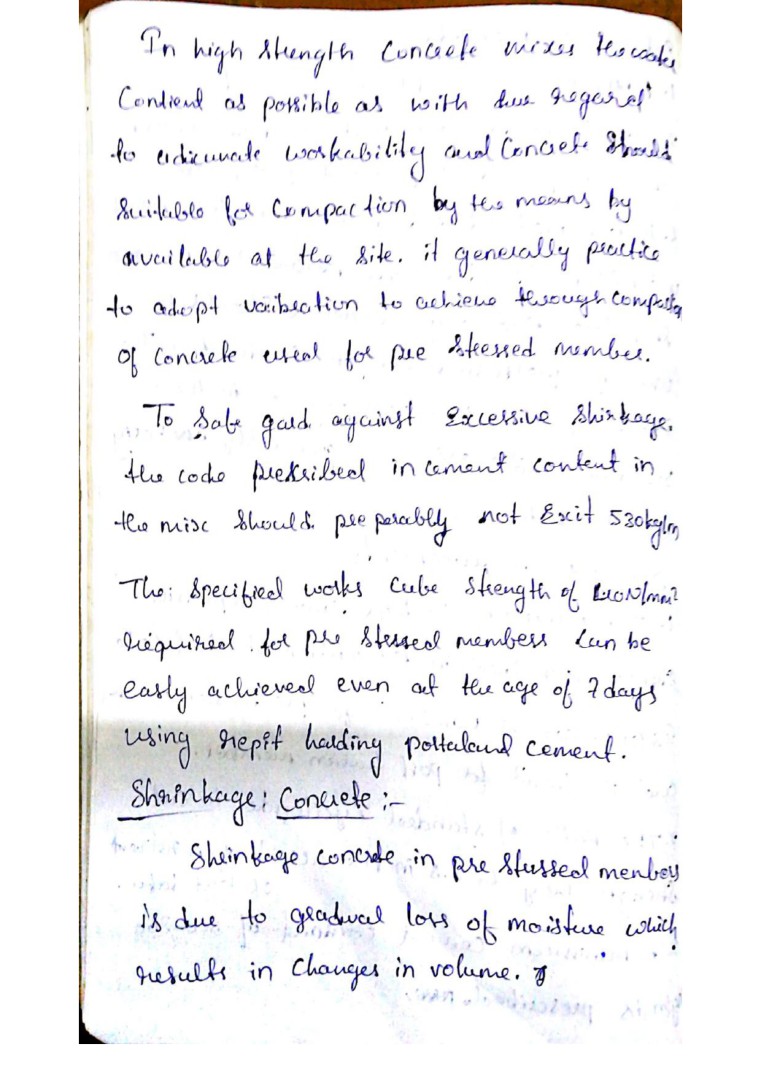 In high strength Concrete mixes the water
Contend as possible as with due regard
to adicunate workability and Concrete Should
Suitable for Compaction by the means by
available at the site. it generally practice
to adopt vaibration to achieve through compaction
of Concrete used for pre stressed member.
To Safe gard against Excessive Shirkage.
the code preksribed in cement content in.
the misc Should preperably not Exit 530kg/m
The: Specified works Cube Strength of 40N/mm²
required for pre stessed members Can be
easly achieved even at the age of 7 days
using repit harding portaland cement.
Shrinkage: Concrete :-
Sheinkage concrete in pre stussed menbers
is due to gradual loss of moisture which
results in Changes in volume.